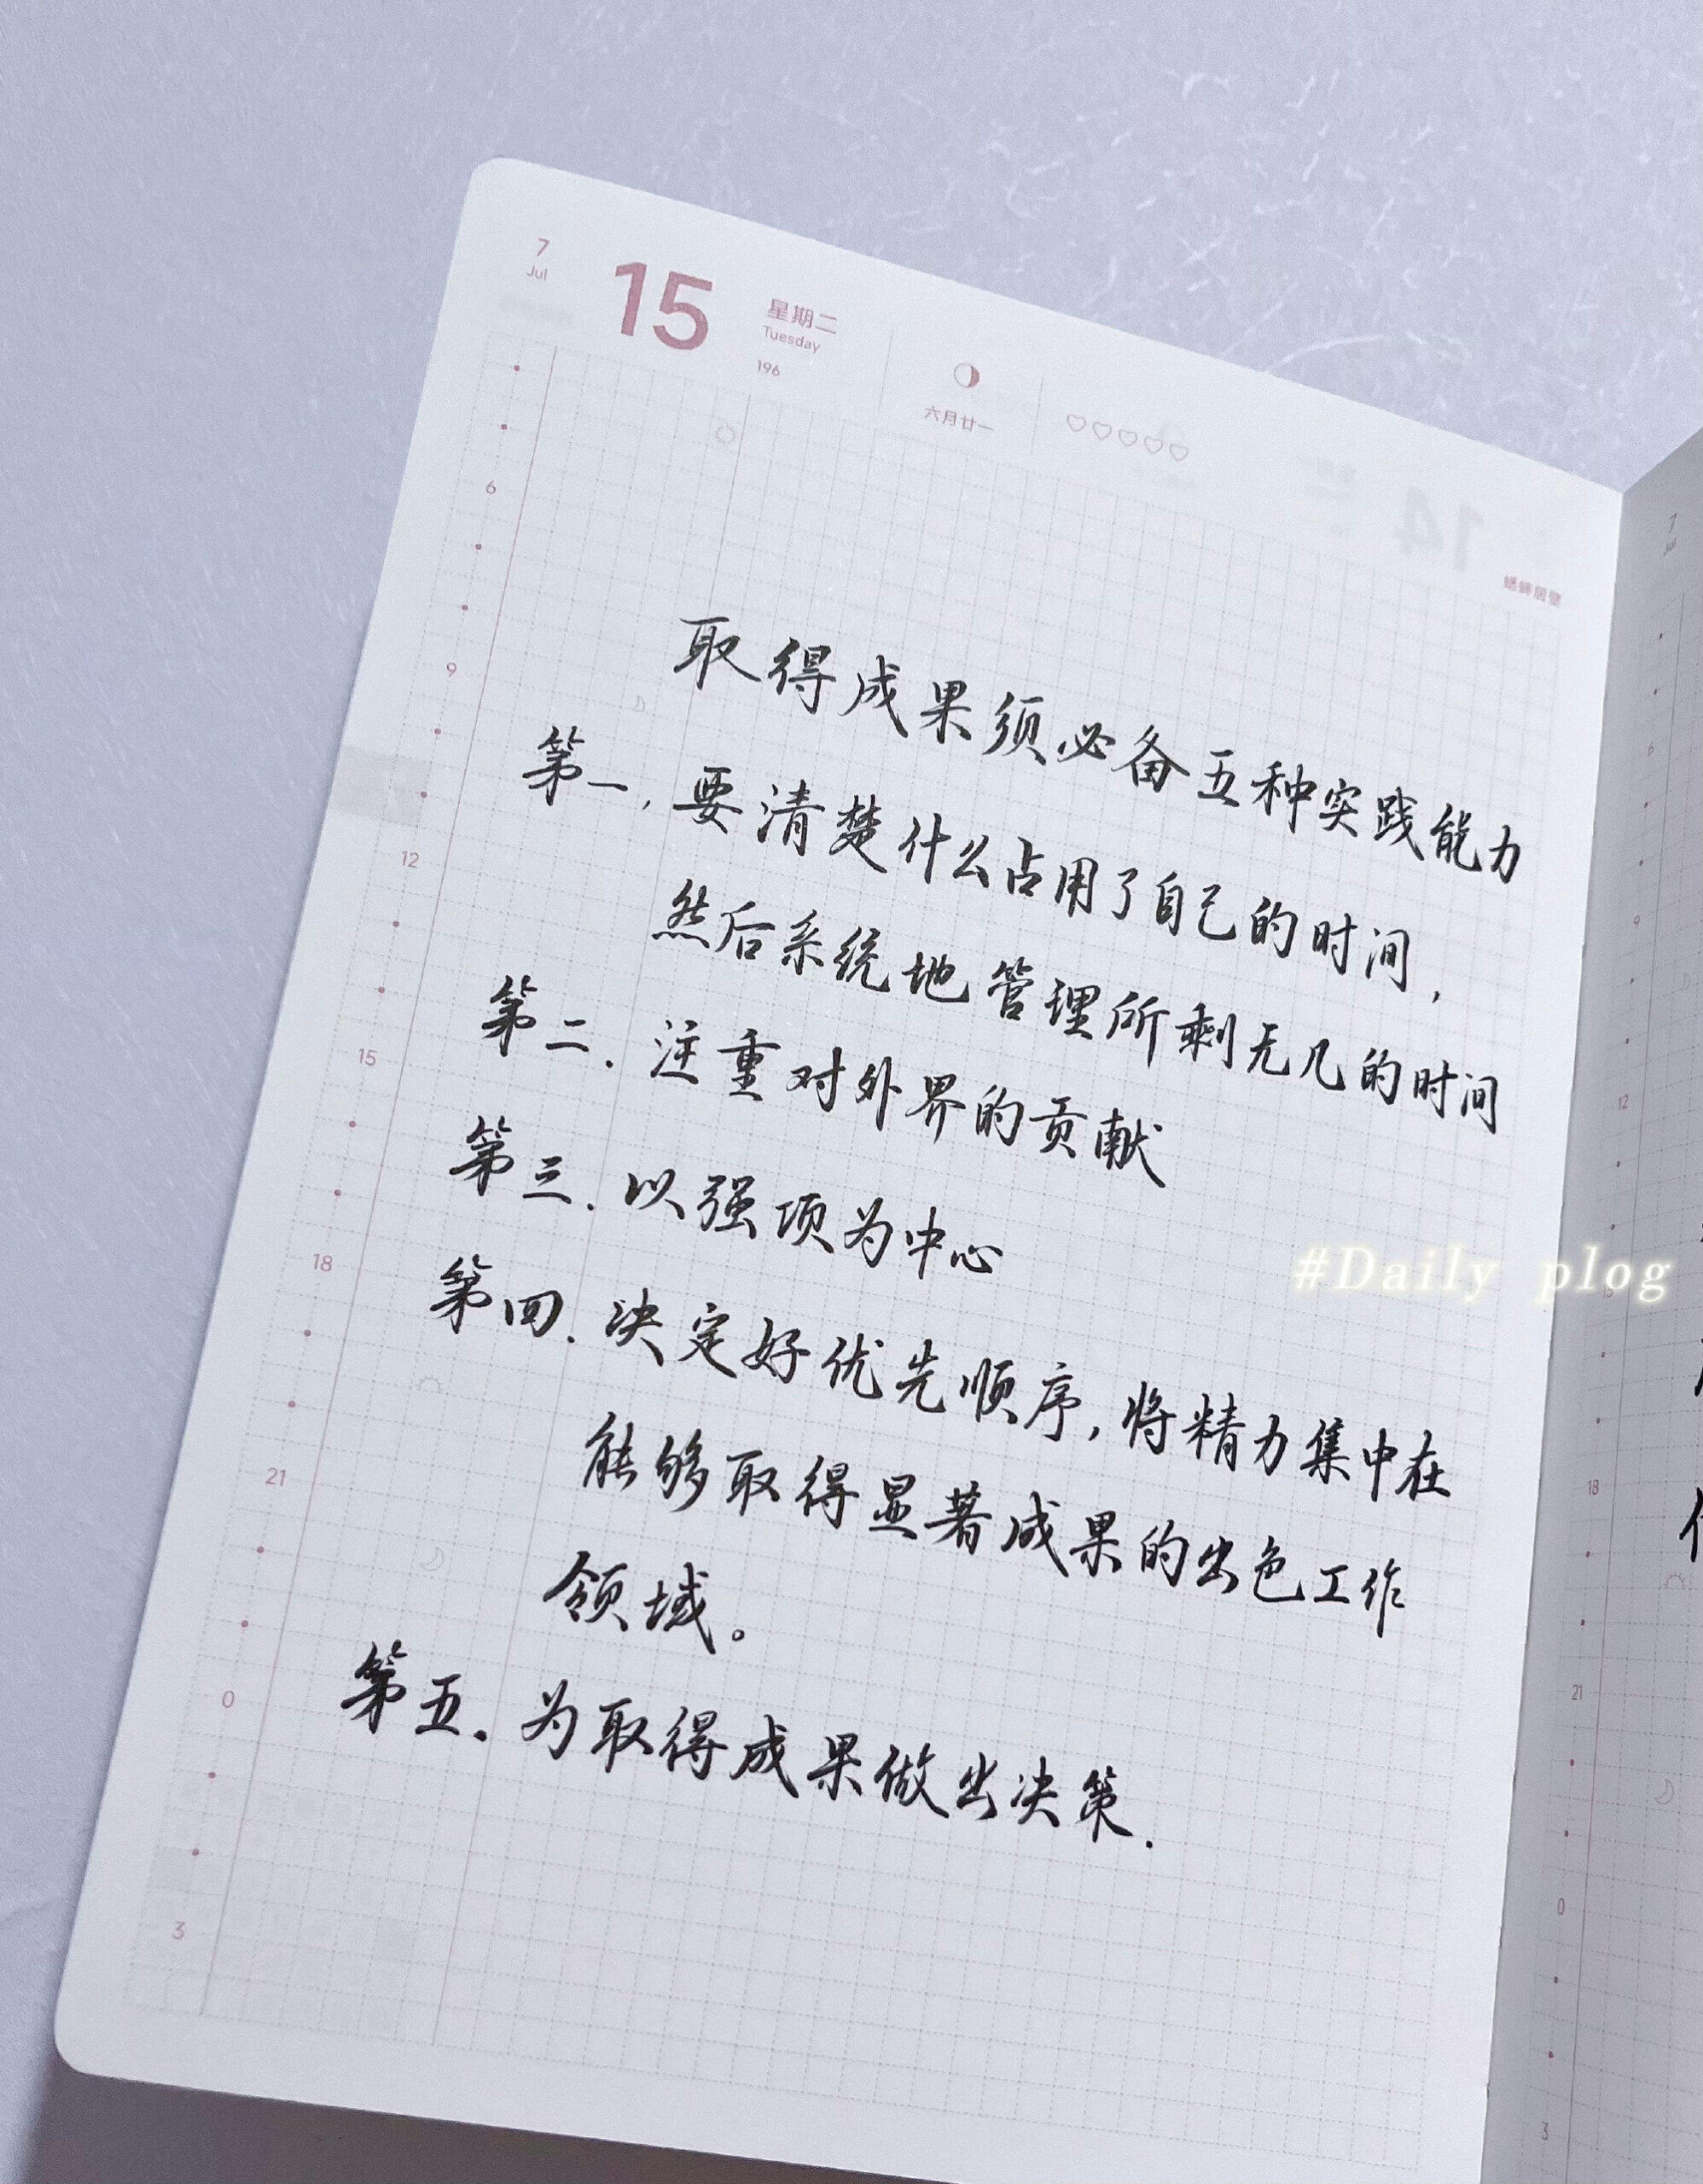 7
Jul
15
星期二
Tuesday
196
六月廿一
取得成果须必备五种实践能力
第一，要清楚什么占用了自己的时间，
然后系统地管理所剩无几的时间
第二．注重对外界的贡献
第三．以强项为中心
第四．决定好优先顺序，将精力集中在
能够取得显著成果的出色工作
领域。
第五．为取得成果做出决策．
6
9
12
15
18
21
0
3
#Daily plog
7
6
9
12
18
21
0
3